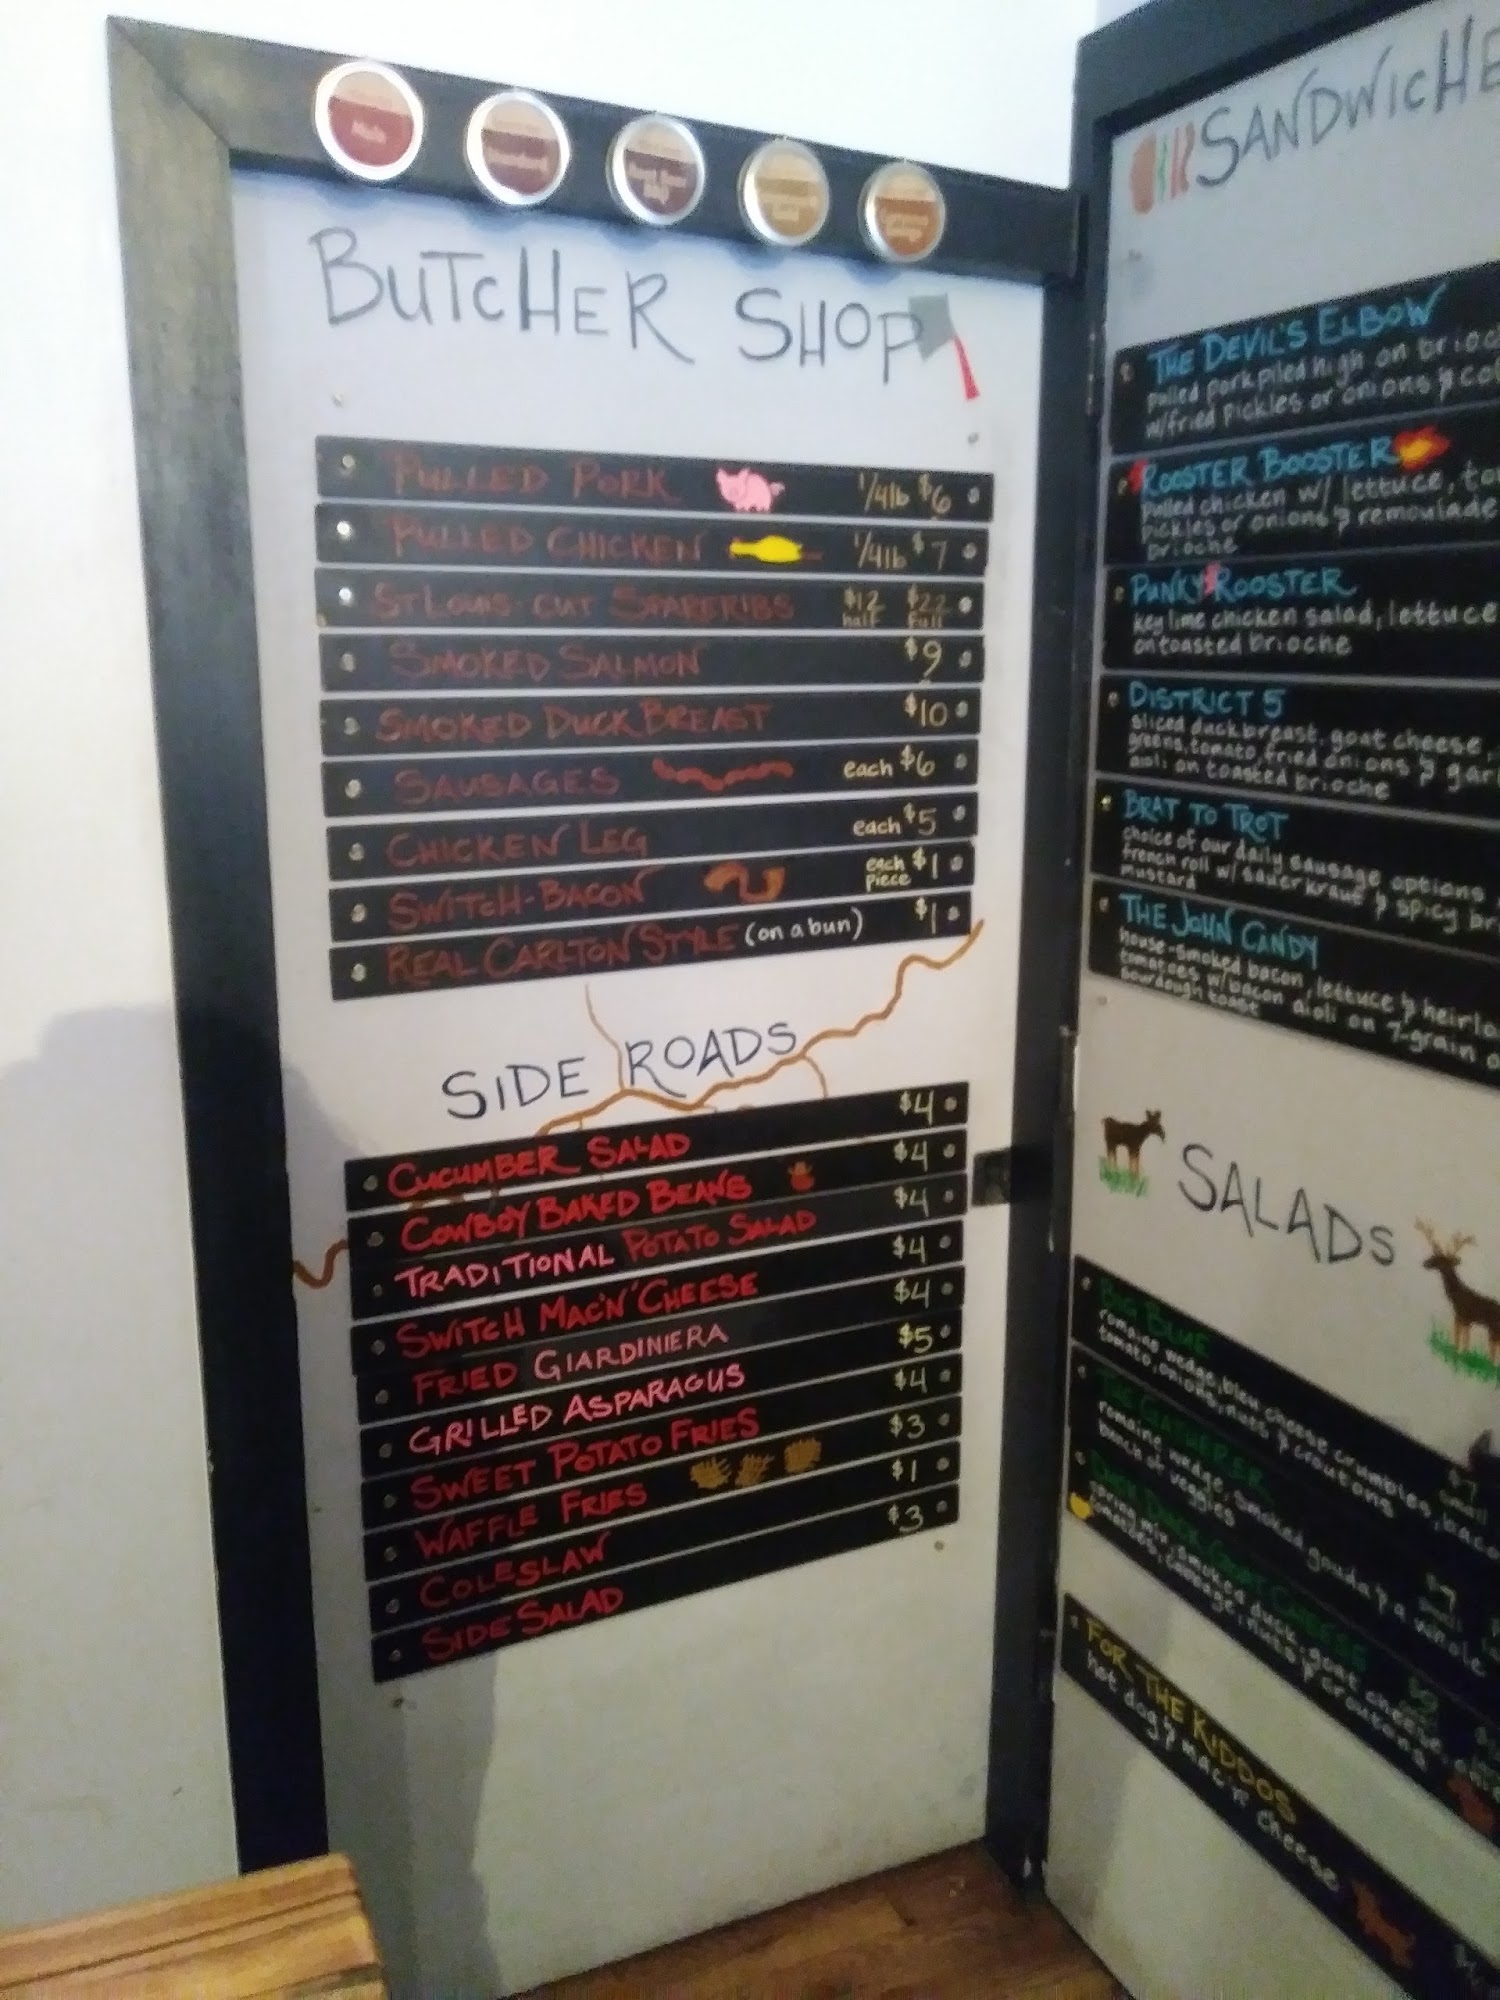 BUTCHER SHOP
PULLED PORK 1/4lb $6
PULLED CHICKEN 1/4lb $7
ST LOUIS-CUT SPARERIBS $12 half $22 Full
SMOKED SALMON $9
SMOKED DUCK BREAST $10
SAUSAGES each $6
CHICKEN LEG each $5
SWITCH-BACON each piece $1
REAL CARLTON STYLE (on a bun) $1
SIDE ROADS
CUCUMBER SALAD $4
COWBOY BAKED BEANS $4
TRADITIONAL POTATO SALAD $4
SWITCH MAC'N'CHEESE $4
FRIED GIARDINIERA $4
GRILLED ASPARAGUS $5
SWEET POTATO FRIES $4
WAFFLE FRIES $3
COLESLAW $1
SIDE SALAD $3
SANDWICHE
THE DEVIL'S ELBOW
pulled pork piled high on brioc
w/fried pickles or onions & col
ROOSTER BOOSTER
pulled chicken w/ lettuce, to
pickles or onions & remoulade
brioche
PUNKY ROOSTER
key lime chicken salad, lettuce
on toasted brioche
DISTRICT 5
sliced duck breast, goat cheese,
greens, tomato, fried onions & garl
aioli on toasted brioche
BRAT TO TROT
choice of our daily sausage options
french roll w/ sauerkraut & spicy br
mustard
THE JOHN CANDY
house-smoked bacon, lettuce & heirlo
tomatoes w/bacon aioli on 7-grain o
sourdough toast
SALADS
BIG BLUE
romaine wedge, bleu cheese crumbles, baco
tomato, onions, nuts & croutons $7 small
THE GATHERER
romaine wedge, smoked gouda & a whole
bunch of veggies $7 small
DUCK DUCK GOAT CHEESE
spring mix, smoked duck, goat cheese,
tomatoes, cabbage, nuts & croutons $9
FOR THE KIDDOS
hot dog & mac'n' cheese